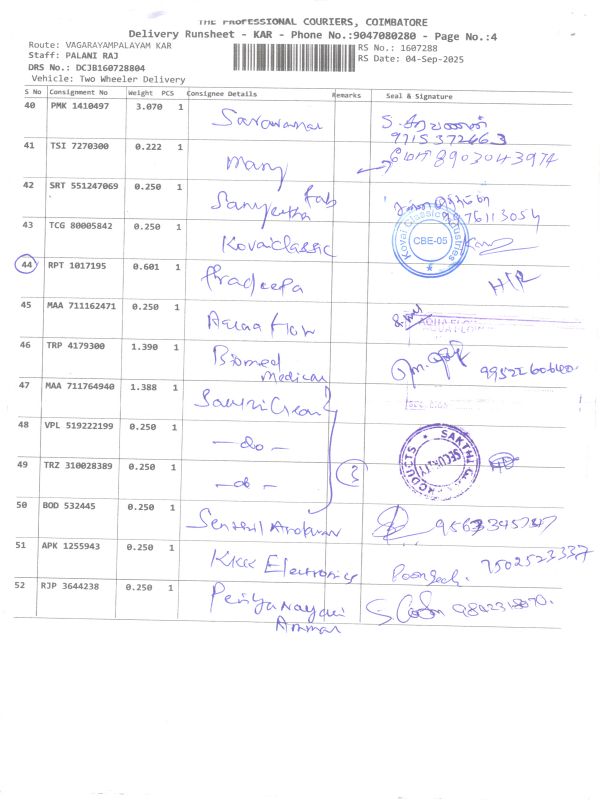 THE PROFESSIONAL COURIERS, COIMBATORE
Delivery Runsheet - KAR - Phone No.:9047080280 - Page No.:4
Route: VAGARAYAMPALAYAM KAR
RS No.: 1607288
Staff: PALANI RAJ
RS Date: 04-Sep-2025
DRS No.: DCJB160728804
Vehicle: Two Wheeler Delivery
S No Consignment No Weight PCS Consignee Details Remarks Seal & Signature
40 PMK 1410497 3.070 1 Saravanan
9715372463
41 TSI 7270300 0.222 1 Mary 8903043974
42 SRT 551247069 0.250 1 Sanjeetha fab
43 TCG 80005842 0.250 1 Kovai Classic
Kovai Classic Industries
CBE-05
44 RPT 1017195 0.601 1 Pradeepa
45 MAA 711162471 0.250 1 Aquaflow
46 TRP 4179300 1.390 1 Biomed
Medical
47 MAA 711764940 1.388 1
48 VPL 519222199 0.250 1 - do -
SAKTHI
SECURITY
PRODUCTS
49 TRZ 310028389 0.250 1 - do - 3
50 BOD 532445 0.250 1 Senthil
51 APK 1255943 0.250 1 KKK Electronics 7502523337
52 RJP 3644238 0.250 1 Periyanayagi
Ammal